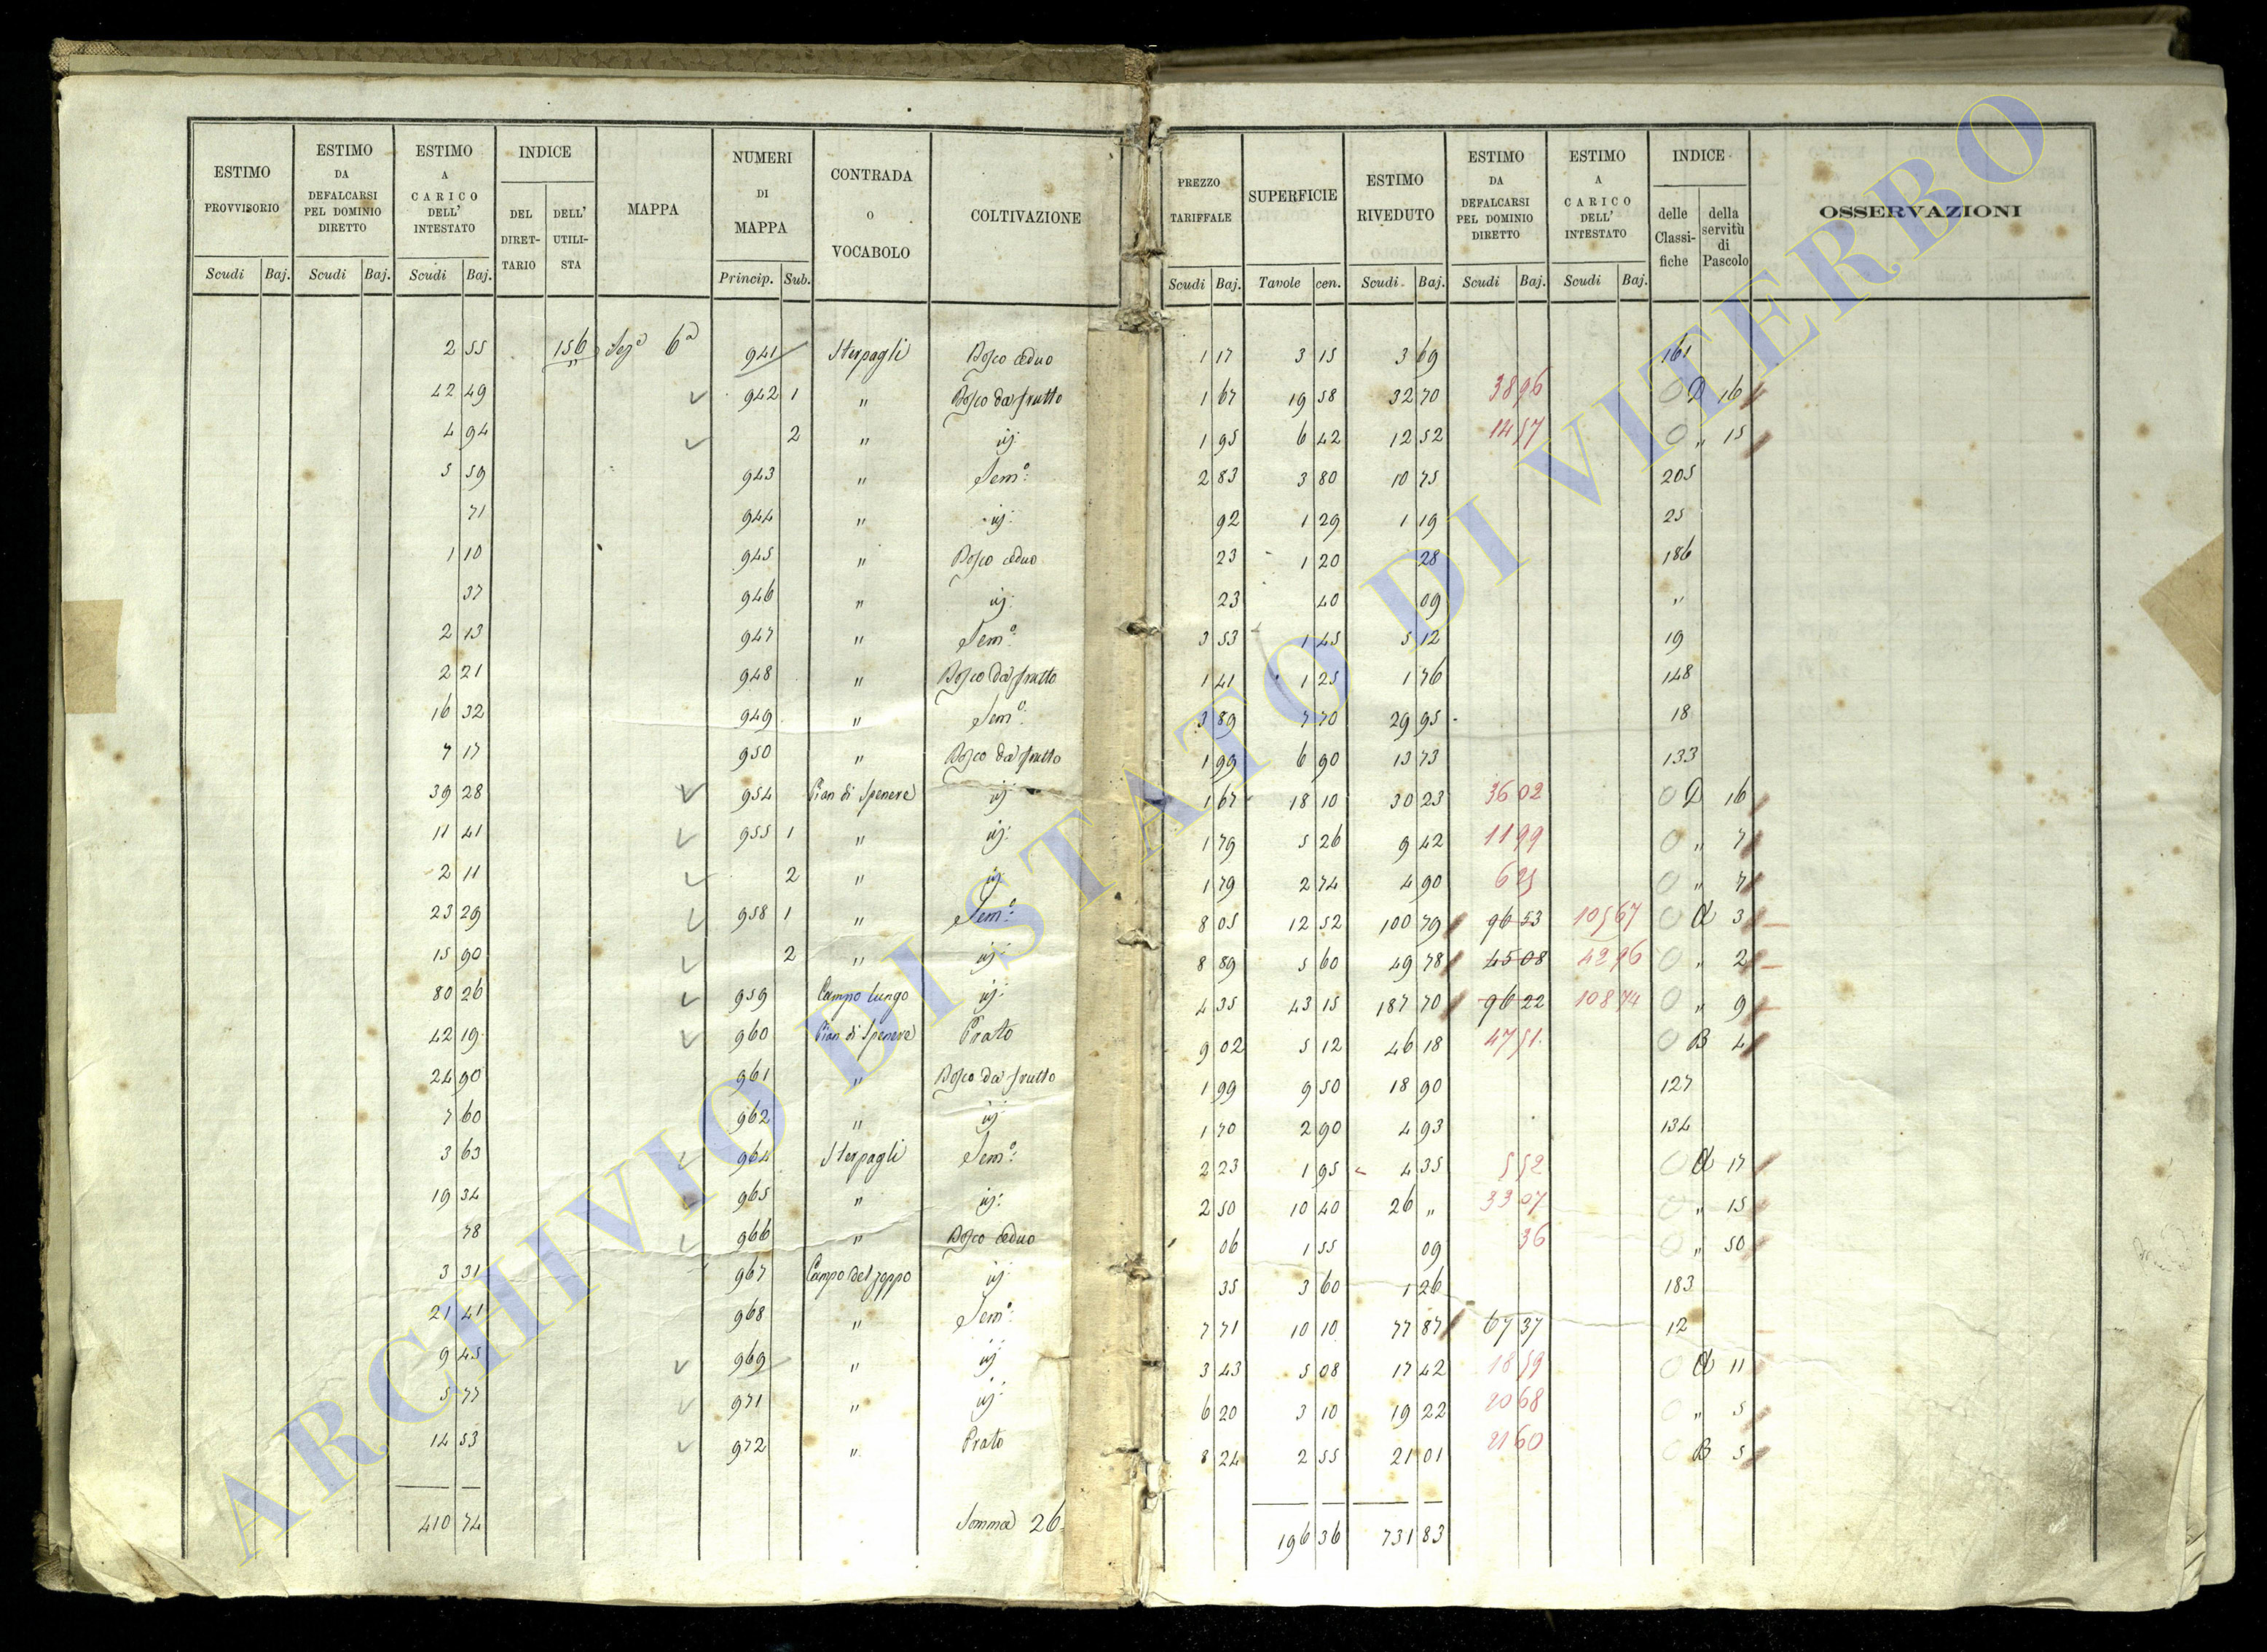 ESTIMO PROVVISORIO | ESTIMO DA DEFALCARSI PEL DOMINIO DIRETTO | ESTIMO A CARICO DELL' INTESTATO | INDICE | MAPPA | NUMERI DI MAPPA | CONTRADA O VOCABOLO | COLTIVAZIONE | PREZZO TARIFFALE | SUPERFICIE | ESTIMO RIVEDUTO | ESTIMO DA DEFALCARSI PEL DOMINIO DIRETTO | ESTIMO A CARICO DELL' INTESTATO | INDICE | OSSERVAZIONI
DEL DIRETTARIO | DELL' UTILISTA | delle Classifiche | della servitù di Pascolo
Scudi | Baj. | Scudi | Baj. | Scudi | Baj. | Princip. | Sub. | Scudi | Baj. | Tavole | cen. | Scudi | Baj. | Scudi | Baj. | Scudi | Baj.
2 55 | 156 | Sez.a 6a | 941 | Sterpagli | Bosco ceduo | 1 17 | 3 15 | 3 69 | 161
42 49 | 942 1 | " | Bosco da frutto | 1 67 | 19 58 | 32 70 | 38 96 | 0 D 16
4 94 | 2 | " | id: | 1 95 | 6 42 | 12 52 | 14 57 | 0 " 15
5 59 | 943 | " | Sem.o: | 2 83 | 3 80 | 10 75 | 205
71 | 944 | " | id: | 92 | 1 29 | 1 19 | 25
1 10 | 945 | " | Bosco ceduo | 23 | 1 20 | 28 | 186
37 | 946 | " | id: | 23 | 40 | 09 | "
2 13 | 947 | " | Sem.o: | 3 53 | 1 45 | 5 12 | 19
2 21 | 948 | " | Bosco da frutto | 1 41 | 1 25 | 1 76 | 148
16 32 | 949 | " | Sem.o: | 3 89 | 7 70 | 29 95 | 18
7 17 | 950 | " | Bosco da frutto | 1 99 | 6 90 | 13 73 | 133
39 28 | 954 | Pian di Spenere | id: | 1 67 | 18 10 | 30 23 | 36 02 | 0 D 16
11 41 | 955 1 | " | id: | 1 79 | 5 26 | 9 42 | 11 99 | 0 " 7
2 11 | 2 | " | id: | 1 79 | 2 74 | 4 90 | 6 25 | 0 " 7
23 29 | 958 1 | " | Sem.o: | 8 05 | 12 52 | 100 79 | 96 53 | 105 67 | 0 A 3
15 90 | 2 | " | id: | 8 89 | 5 60 | 49 78 | 45 08 | 42 96 | 0 " 2
80 26 | 959 | Campo lungo | id: | 4 35 | 43 15 | 187 70 | 96 22 | 108 74 | 0 " 9
42 19 | 960 | Pian di Spenere | Prato | 9 02 | 5 12 | 46 18 | 47 51 | 0 B 4
24 90 | 961 | " | Bosco da frutto | 1 99 | 9 50 | 18 90 | 127
7 60 | 962 | " | id: | 1 70 | 2 90 | 4 93 | 134
3 63 | 964 | Sterpagli | Sem.o: | 2 23 | 1 95 | 4 35 | 5 52 | 0 A 17
19 34 | 965 | " | id: | 2 50 | 10 40 | 26 " | 33 07 | 0 " 15
78 | 966 | " | Bosco ceduo | 06 | 1 55 | 09 | 36 | 0 " 50
3 31 | 967 | Campo del zoppo | id: | 35 | 3 60 | 1 26 | 183
21 41 | 968 | " | Sem.o: | 7 71 | 10 10 | 77 87 | 67 37 | 12
9 45 | 969 | " | id: | 3 43 | 5 08 | 17 42 | 18 59 | 0 A 11
5 77 | 971 | " | id: | 6 20 | 3 10 | 19 22 | 20 68 | 0 " 5
14 53 | 972 | " | Prato | 8 24 | 2 55 | 21 01 | 21 60 | 0 B 5
410 74 | Somma 26 | 196 36 | 731 83
ARCHIVIO DI STATO DI VITERBO